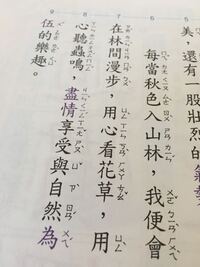 5 美，還有一股壯烈的
6 每當秋色入山林，我便會
7 在林間漫步，用心看花草，用
8 心聽蟲鳴，盡情享受與自然為
9 伍的樂趣。